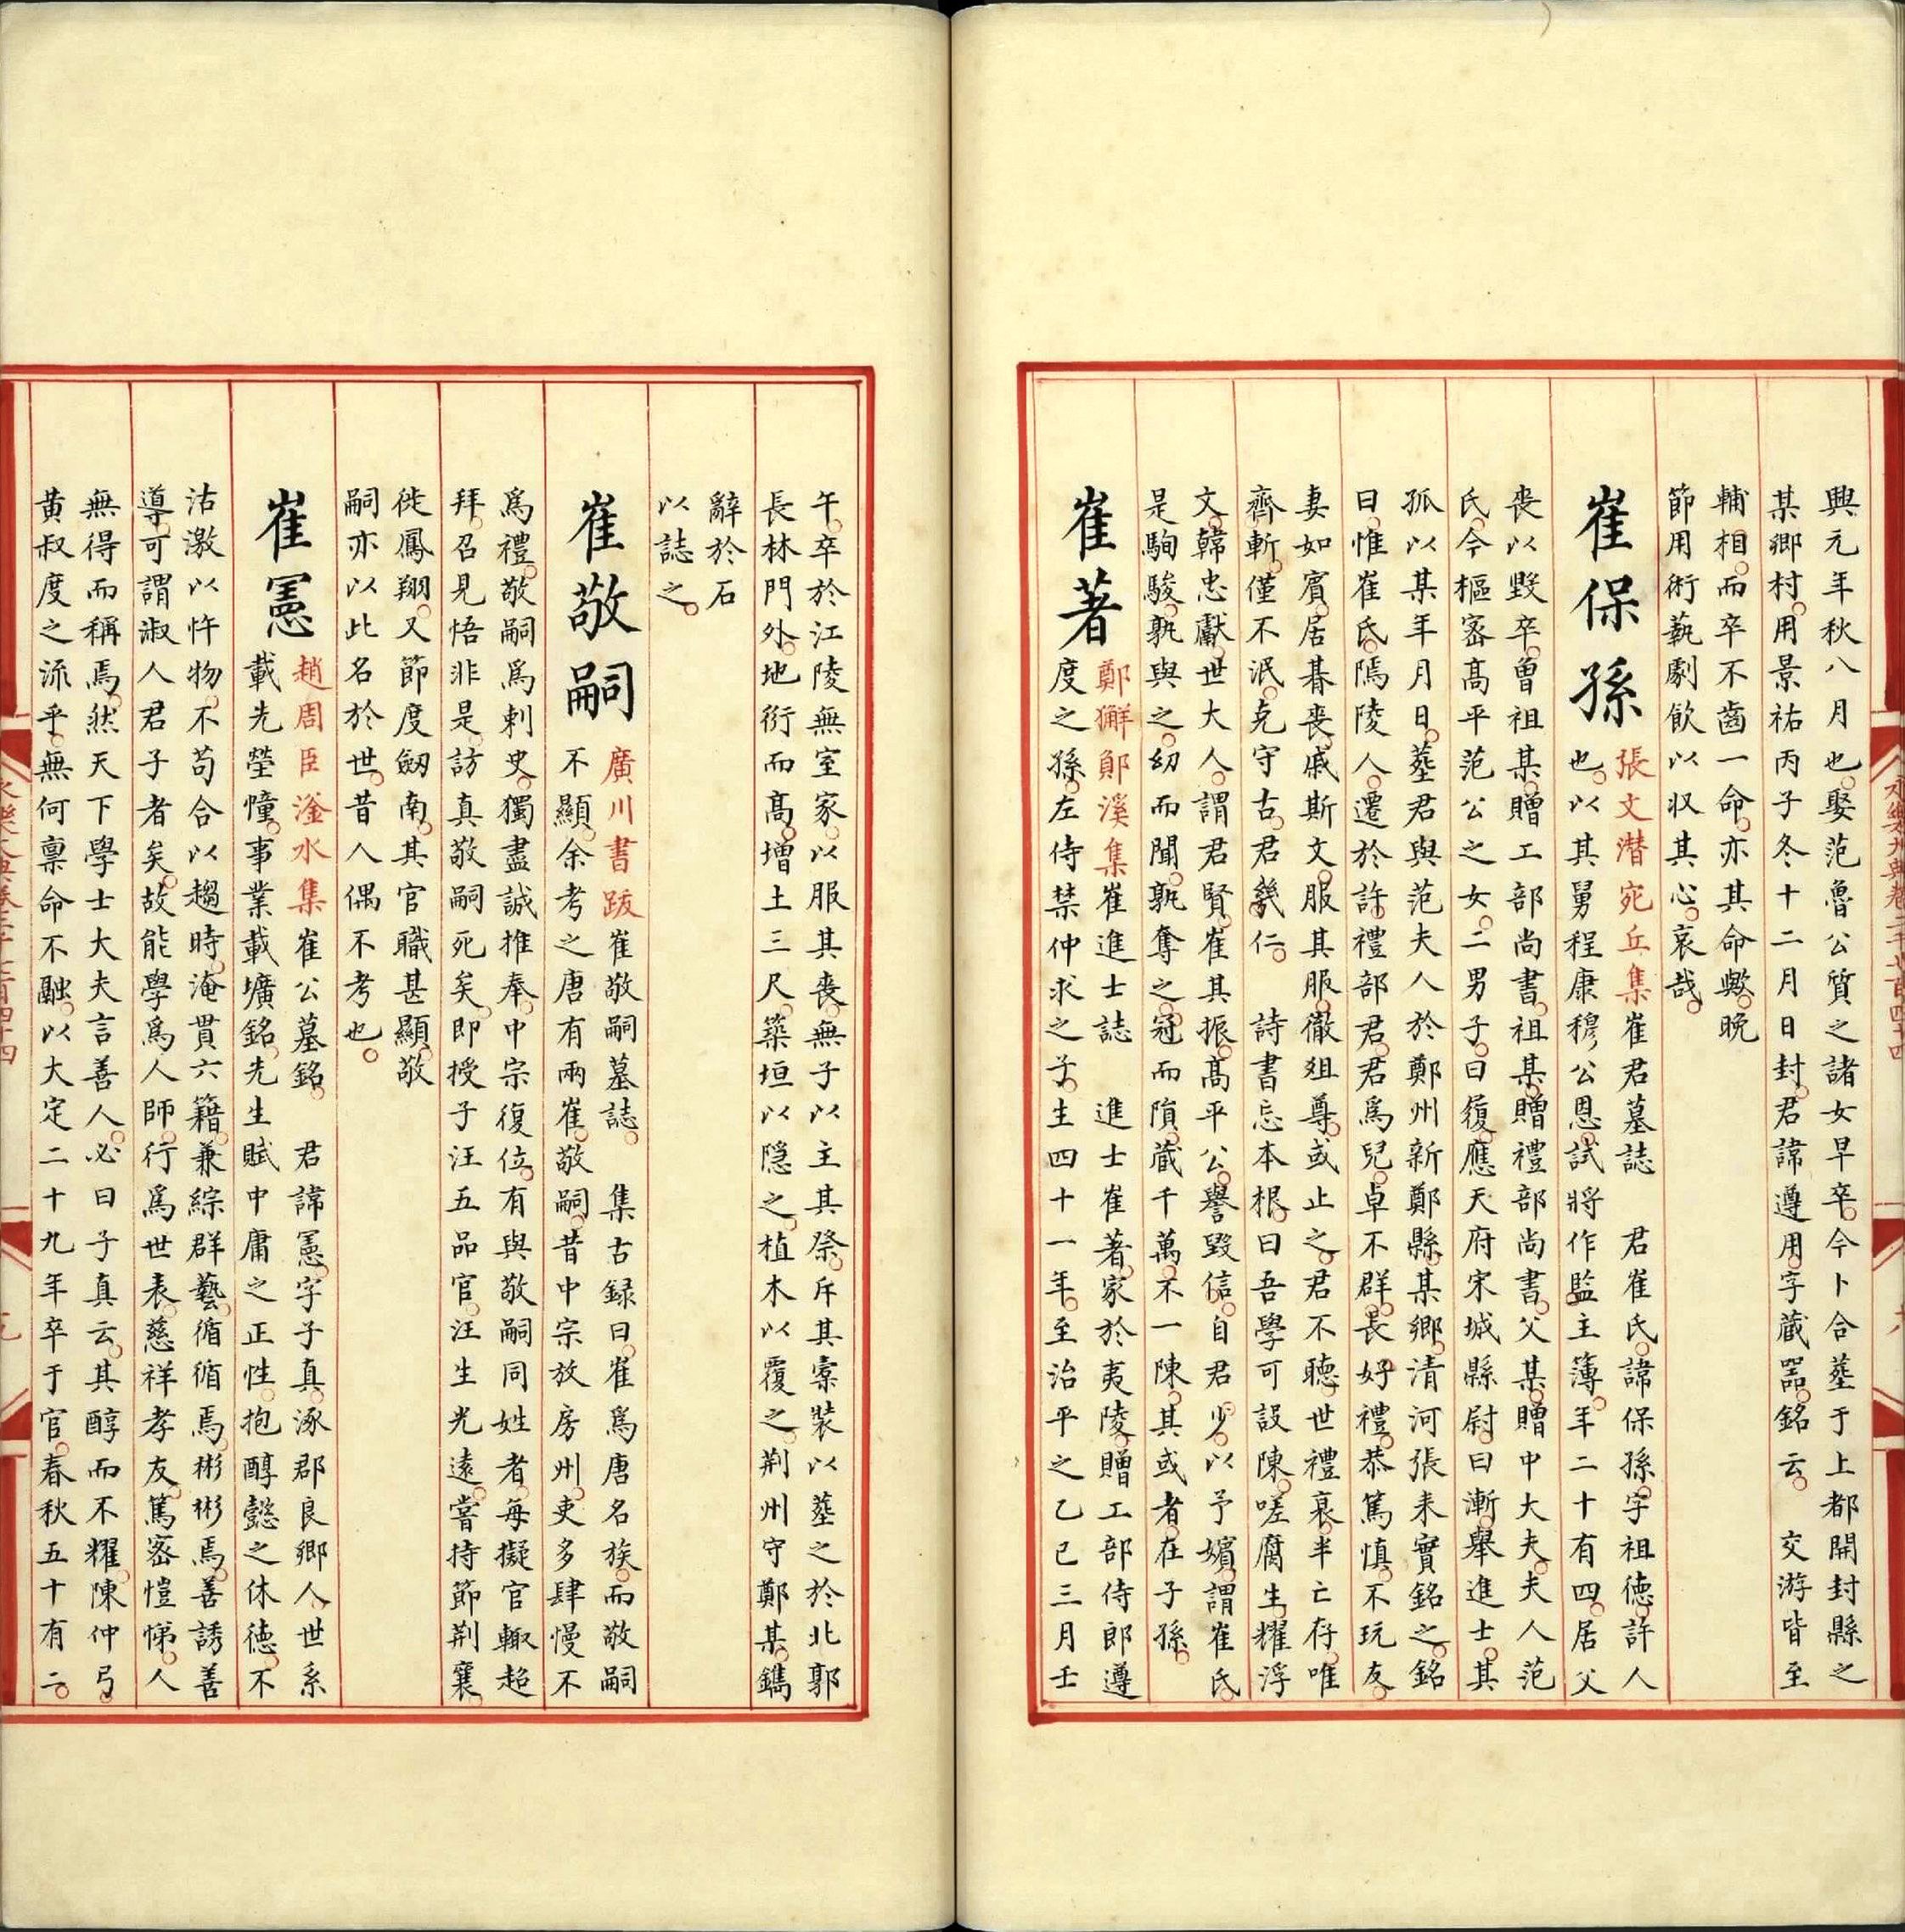 興元年秋八月也娶范魯公質之諸女早卒今卜合葬于上都開封縣之
某鄉村用景祐丙子冬十二月日封君諱遵用字藏器銘云　交游皆至
輔相而卒不齒一命亦其命歟晚
節用術藝劇飲以収其心哀哉
崔保孫
張文潜宛丘集崔君墓誌　君崔氏諱保孫字祖德許人
也以其舅程康穆公恩試將作監主簿年二十有四居父
喪以毀卒曽祖某贈工部尚書祖某贈禮部尚書父某贈中大夫夫人范
氏今樞宻髙平范公之女二男子曰履應天府宋城縣尉曰漸舉進士其
孤以某年月日葬君與范夫人於鄭州新鄭縣某鄉清河張耒實銘之銘
曰惟崔氏隝陵人遷於許禮部君君爲兒卓不群長好禮恭篤慎不玩友
妻如賓居朞喪戚斯文服其服徹俎尊或止之君不聽世禮衰半亡存唯
齊斬僅不泯克守古君幾仁　詩書忘本根曰吾學可設陳嗟腐生耀浮
文韓忠獻世大人謂君賢崔其振髙平公譽毀信自君少以予嬪謂崔氏
是駒駿孰與之幼而聞孰奪之冠而隕蔵千萬不一陳其或者在子孫
崔著
鄭獬鄖溪集崔進士誌　進士崔著家於夷陵贈工部侍郎遵
度之孫左侍禁仲求之子生四十一年至治平之乙巳三月壬
午卒於江陵無室家以服其喪無子以主其祭斥其橐裝以葬之於北郭
長林門外地衍而髙増土三尺築垣以隠之植木以覆之荆州守鄭某鐫
辭於石
以誌之
崔敬嗣
廣川書跋崔敬嗣墓誌　集古録曰崔爲唐名族而敬嗣
不顯余考之唐有兩崔敬嗣昔中宗放房州吏多肆慢不
爲禮敬嗣爲刺史獨盡誠推奉中宗復位有與敬嗣同姓者每擬官輙超
拜召見悟非是訪真敬嗣死矣即授子汪五品官汪生光遠嘗持節荆襄
徙鳳翔又節度劔南其官職甚顯敬
嗣亦以此名於世昔人偶不考也
崔憲
趙周臣滏水集崔公墓銘　君諱憲字子真涿郡良鄉人世系
載先塋幢事業載壙銘先生賦中庸之正性抱醇懿之休德不
沽激以忤物不苟合以趨時淹貫六籍兼綜群藝循循焉彬彬焉善誘善
導可謂淑人君子者矣故能學爲人師行爲世表慈祥孝友篤宻愷悌人
無得而稱焉然天下學士大夫言善人必曰子真云其醇而不耀陳仲弓
黄叔度之流乎無何禀命不融以大定二十九年卒于官春秋五十有二